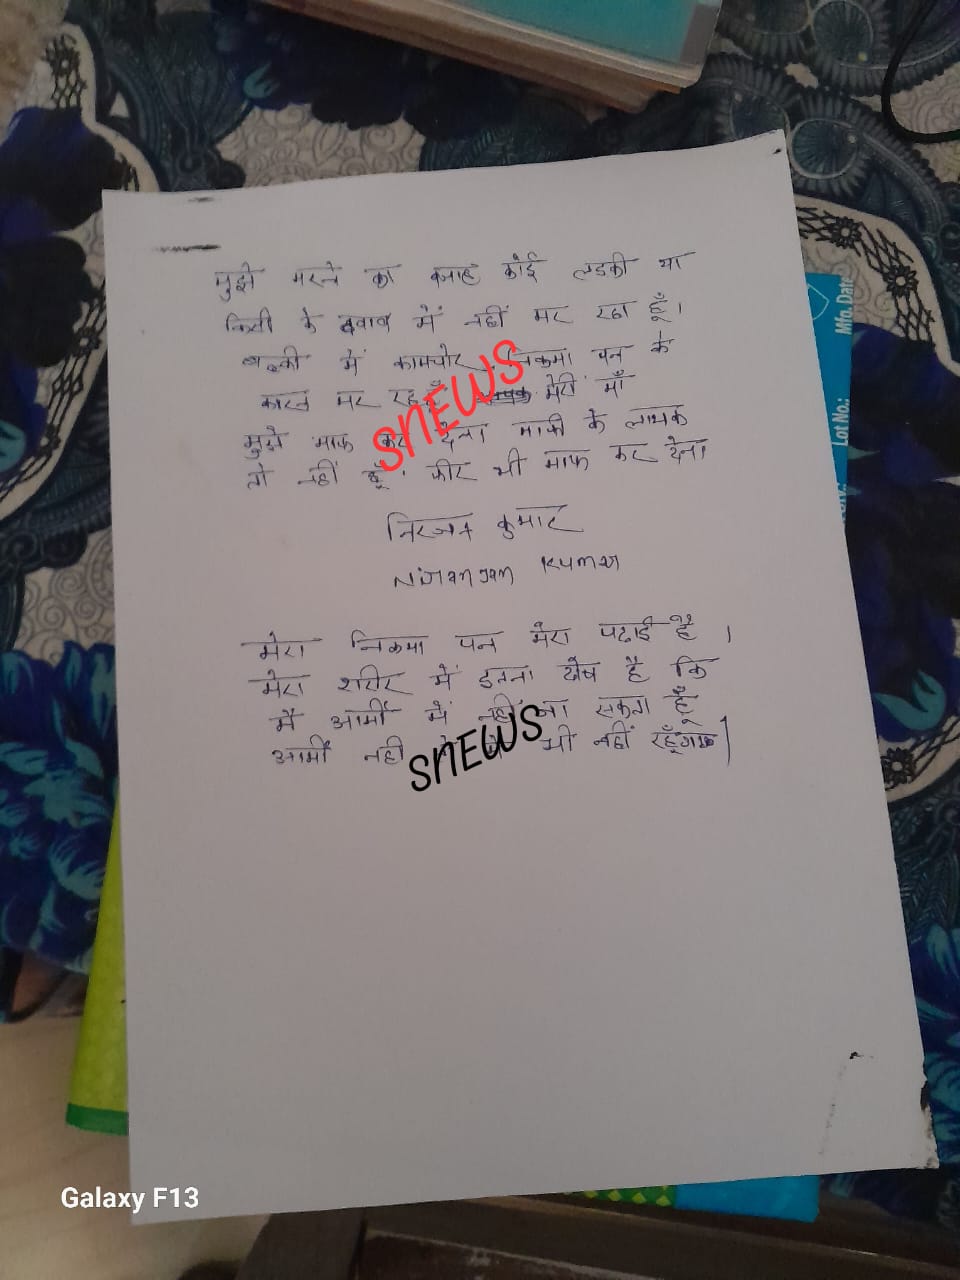 मुझे मरने का वजाह कोई लडकी या
किसी के दवाब में नहीं मर रहा हूँ।
बल्की में कामचोर निकमा पन के
कारन मर रहा हूँ मेरी माँ
मुझे माफ कर देना माफी के लायक
तो नहीं हूँ। फीर भी माफ कर देना
निरंजन कुमार
Niranjan Kumar
मेरा निकमा पन मेरा पढाई है।
मेरा शरीर में इतना है कि
मै आर्मी में नहीं जा सकता हूँ
आर्मी नही भी नहीं
SNEWS
SNEWS
Mfg. Date
Lot No.:
Galaxy F13